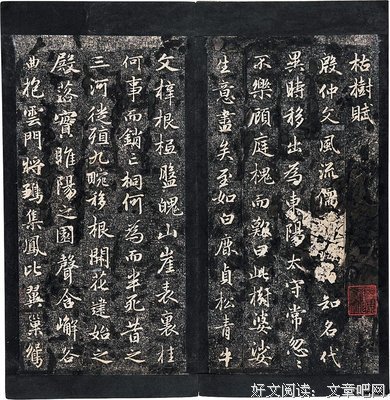 枯樹賦
殷仲文風流儒 知名代
異時移出為東陽太守常忽〻
不樂顧庭槐而歎曰此樹婆娑
生意盡矣至如白鹿貞松青牛
文梓根柢盤魄山崖表裏桂
何事而銷亡桐何為而半死昔之
三河徙殖九畹移根開花建始之
殿落實睢陽之園聲含嶰谷
曲抱雲門將雛集鳳比翼巢鴛
好文阅读：文章吧网